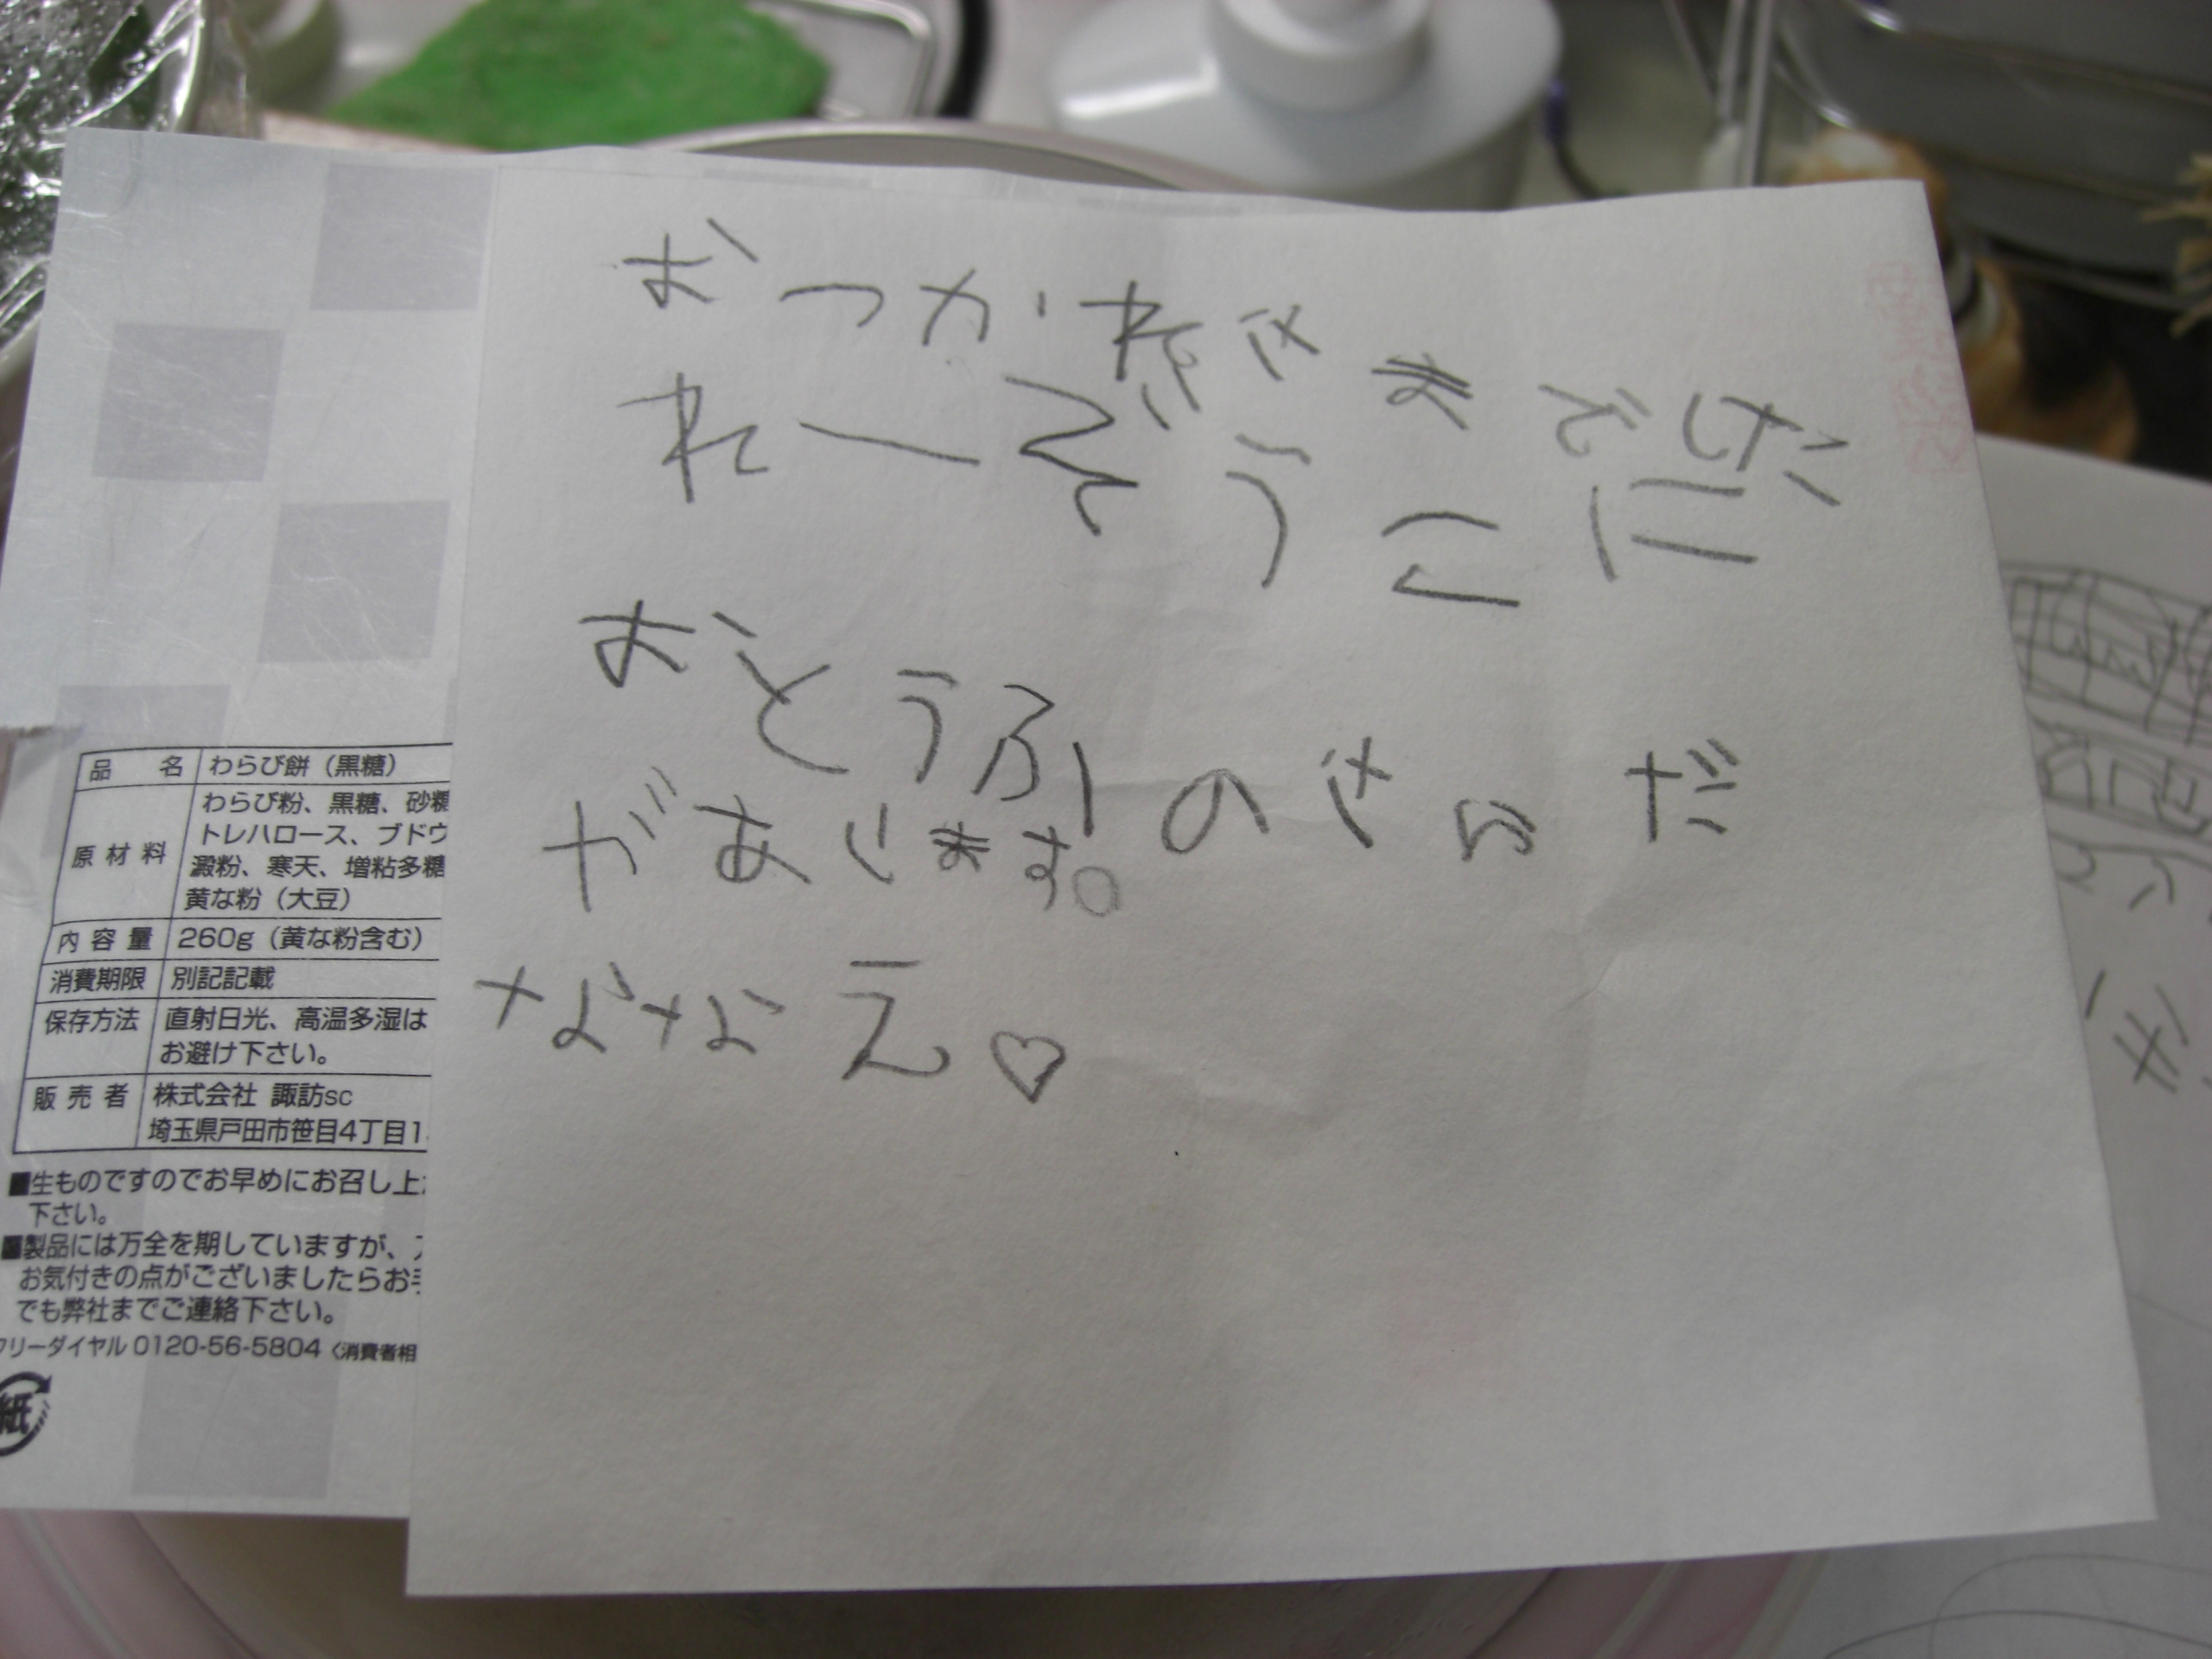 おつかれさまです。
れーぞうこに
おとうふのさらだ
があります。
ななえ♡
品名 わらび餅（黒糖）
原材料 わらび粉、黒糖、砂糖
トレハロース、ブドウ
澱粉、寒天、増粘多糖
黄な粉（大豆）
内容量 260g（黄な粉含む）
消費期限 別記記載
保存方法 直射日光、高温多湿は
お避け下さい。
販売者 株式会社 諏訪sc
埼玉県戸田市笹目4丁目1
■生ものですのでお早めにお召し上
下さい。
■製品には万全を期していますが、
お気付きの点がございましたらお手
でも弊社までご連絡下さい。
フリーダイヤル 0120-56-5804〈消費者相
紙